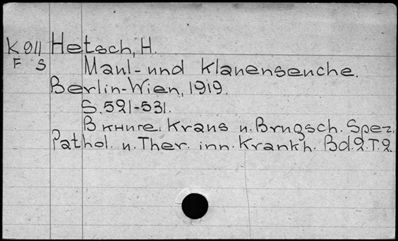 K 011 Hetsch, H.
F S
Maul- und Klauenseuche.
Berlin-Wien, 1919.
S. 521-531.
В книге. Kraus u. Brugsch. Spez.
Pathol. u. Ther. inn. Krankh. Bd.2.T.2.